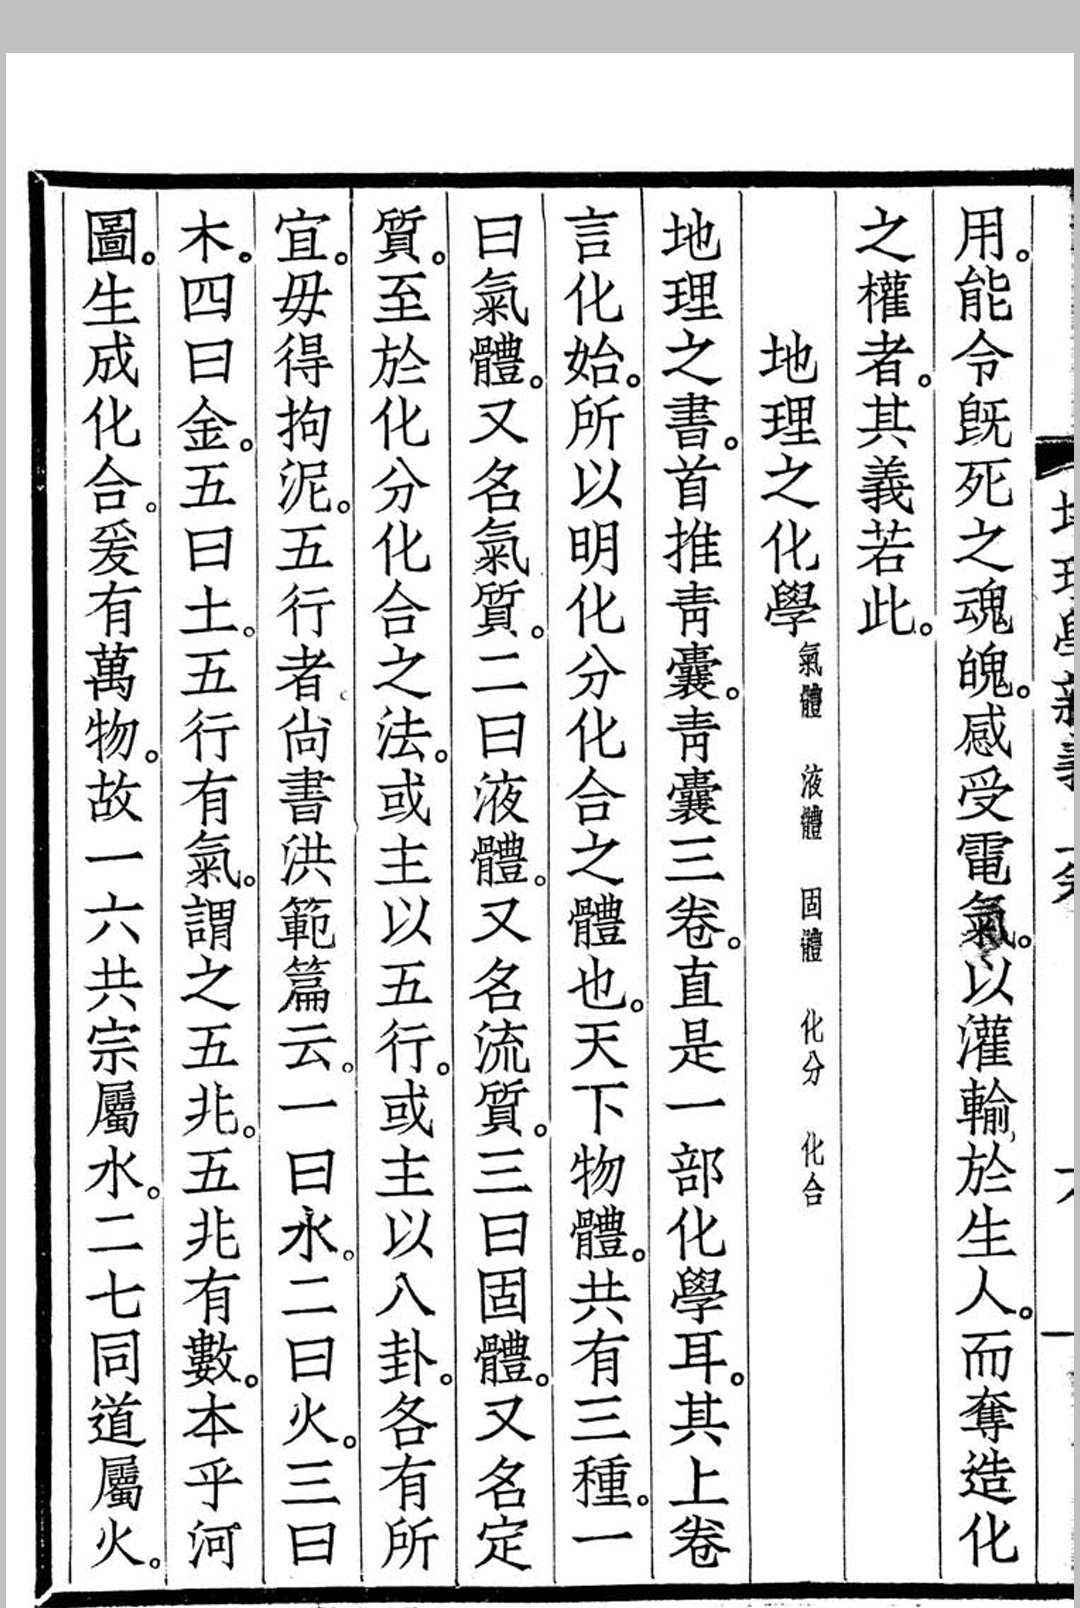 用。能令既死之魂魄。感受電氣。以灌輸於生人。而奪造化
之權者。其義若此。
地理之化學 氣體 液體 固體 化分 化合
地理之書。首推青囊。青囊三卷。直是一部化學耳。其上卷
言化始。所以明化分化合之體也。天下物體。共有三種。一
曰氣體。又名氣質。二曰液體。又名流質。三曰固體。又名定
質。至於化分化合之法。或主以五行。或主以八卦。各有所
宜。毋得拘泥。五行者。尙書洪範篇云。一曰水。二曰火。三曰
木。四曰金。五曰土。五行有氣。謂之五兆。五兆有數。本乎河
圖。生成化合。爰有萬物。故一六共宗屬水。二七同道屬火。